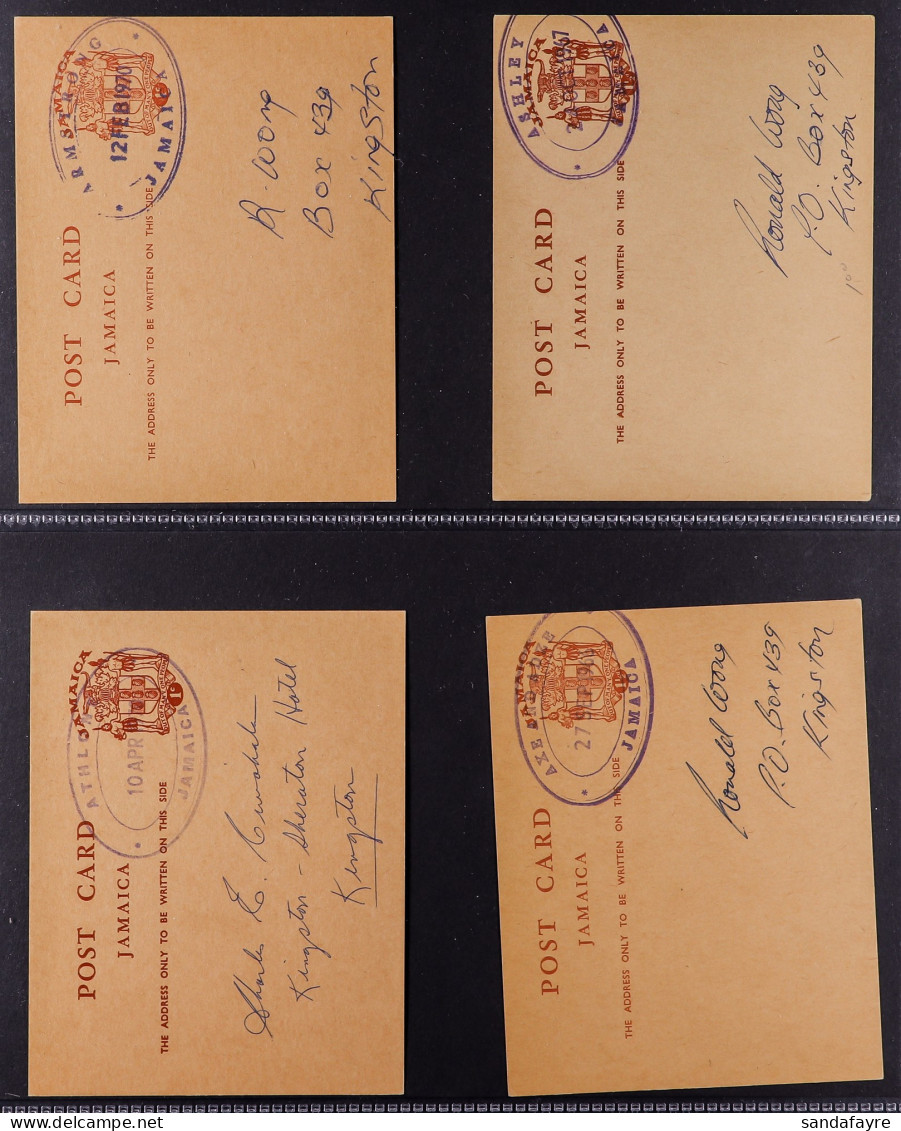 ARMSTRONG
JAMAICA
12 FEB 1970
JAMAICA
POST CARD
JAMAICA
THE ADDRESS ONLY TO BE WRITTEN ON THIS SIDE
R. Wong
Box 439
Kingston
ASHLEY
JAMAICA
1967
JAMAICA
POST CARD
JAMAICA
THE ADDRESS ONLY TO BE WRITTEN ON THIS SIDE
Ronald Wong
P.O. Box 439
Kingston
JAMAICA
1c
10 APR
JAMAICA
POST CARD
JAMAICA
THE ADDRESS ONLY TO BE WRITTEN ON THIS SIDE
Charles E.
Kingston - Sheraton Hotel
Kingston
JAMAICA
27 SEP
JAMAICA
POST CARD
JAMAICA
THE ADDRESS ONLY TO BE WRITTEN ON THIS SIDE
Ronald Wong
P.O. Box 439
Kingston
sandafayre.com